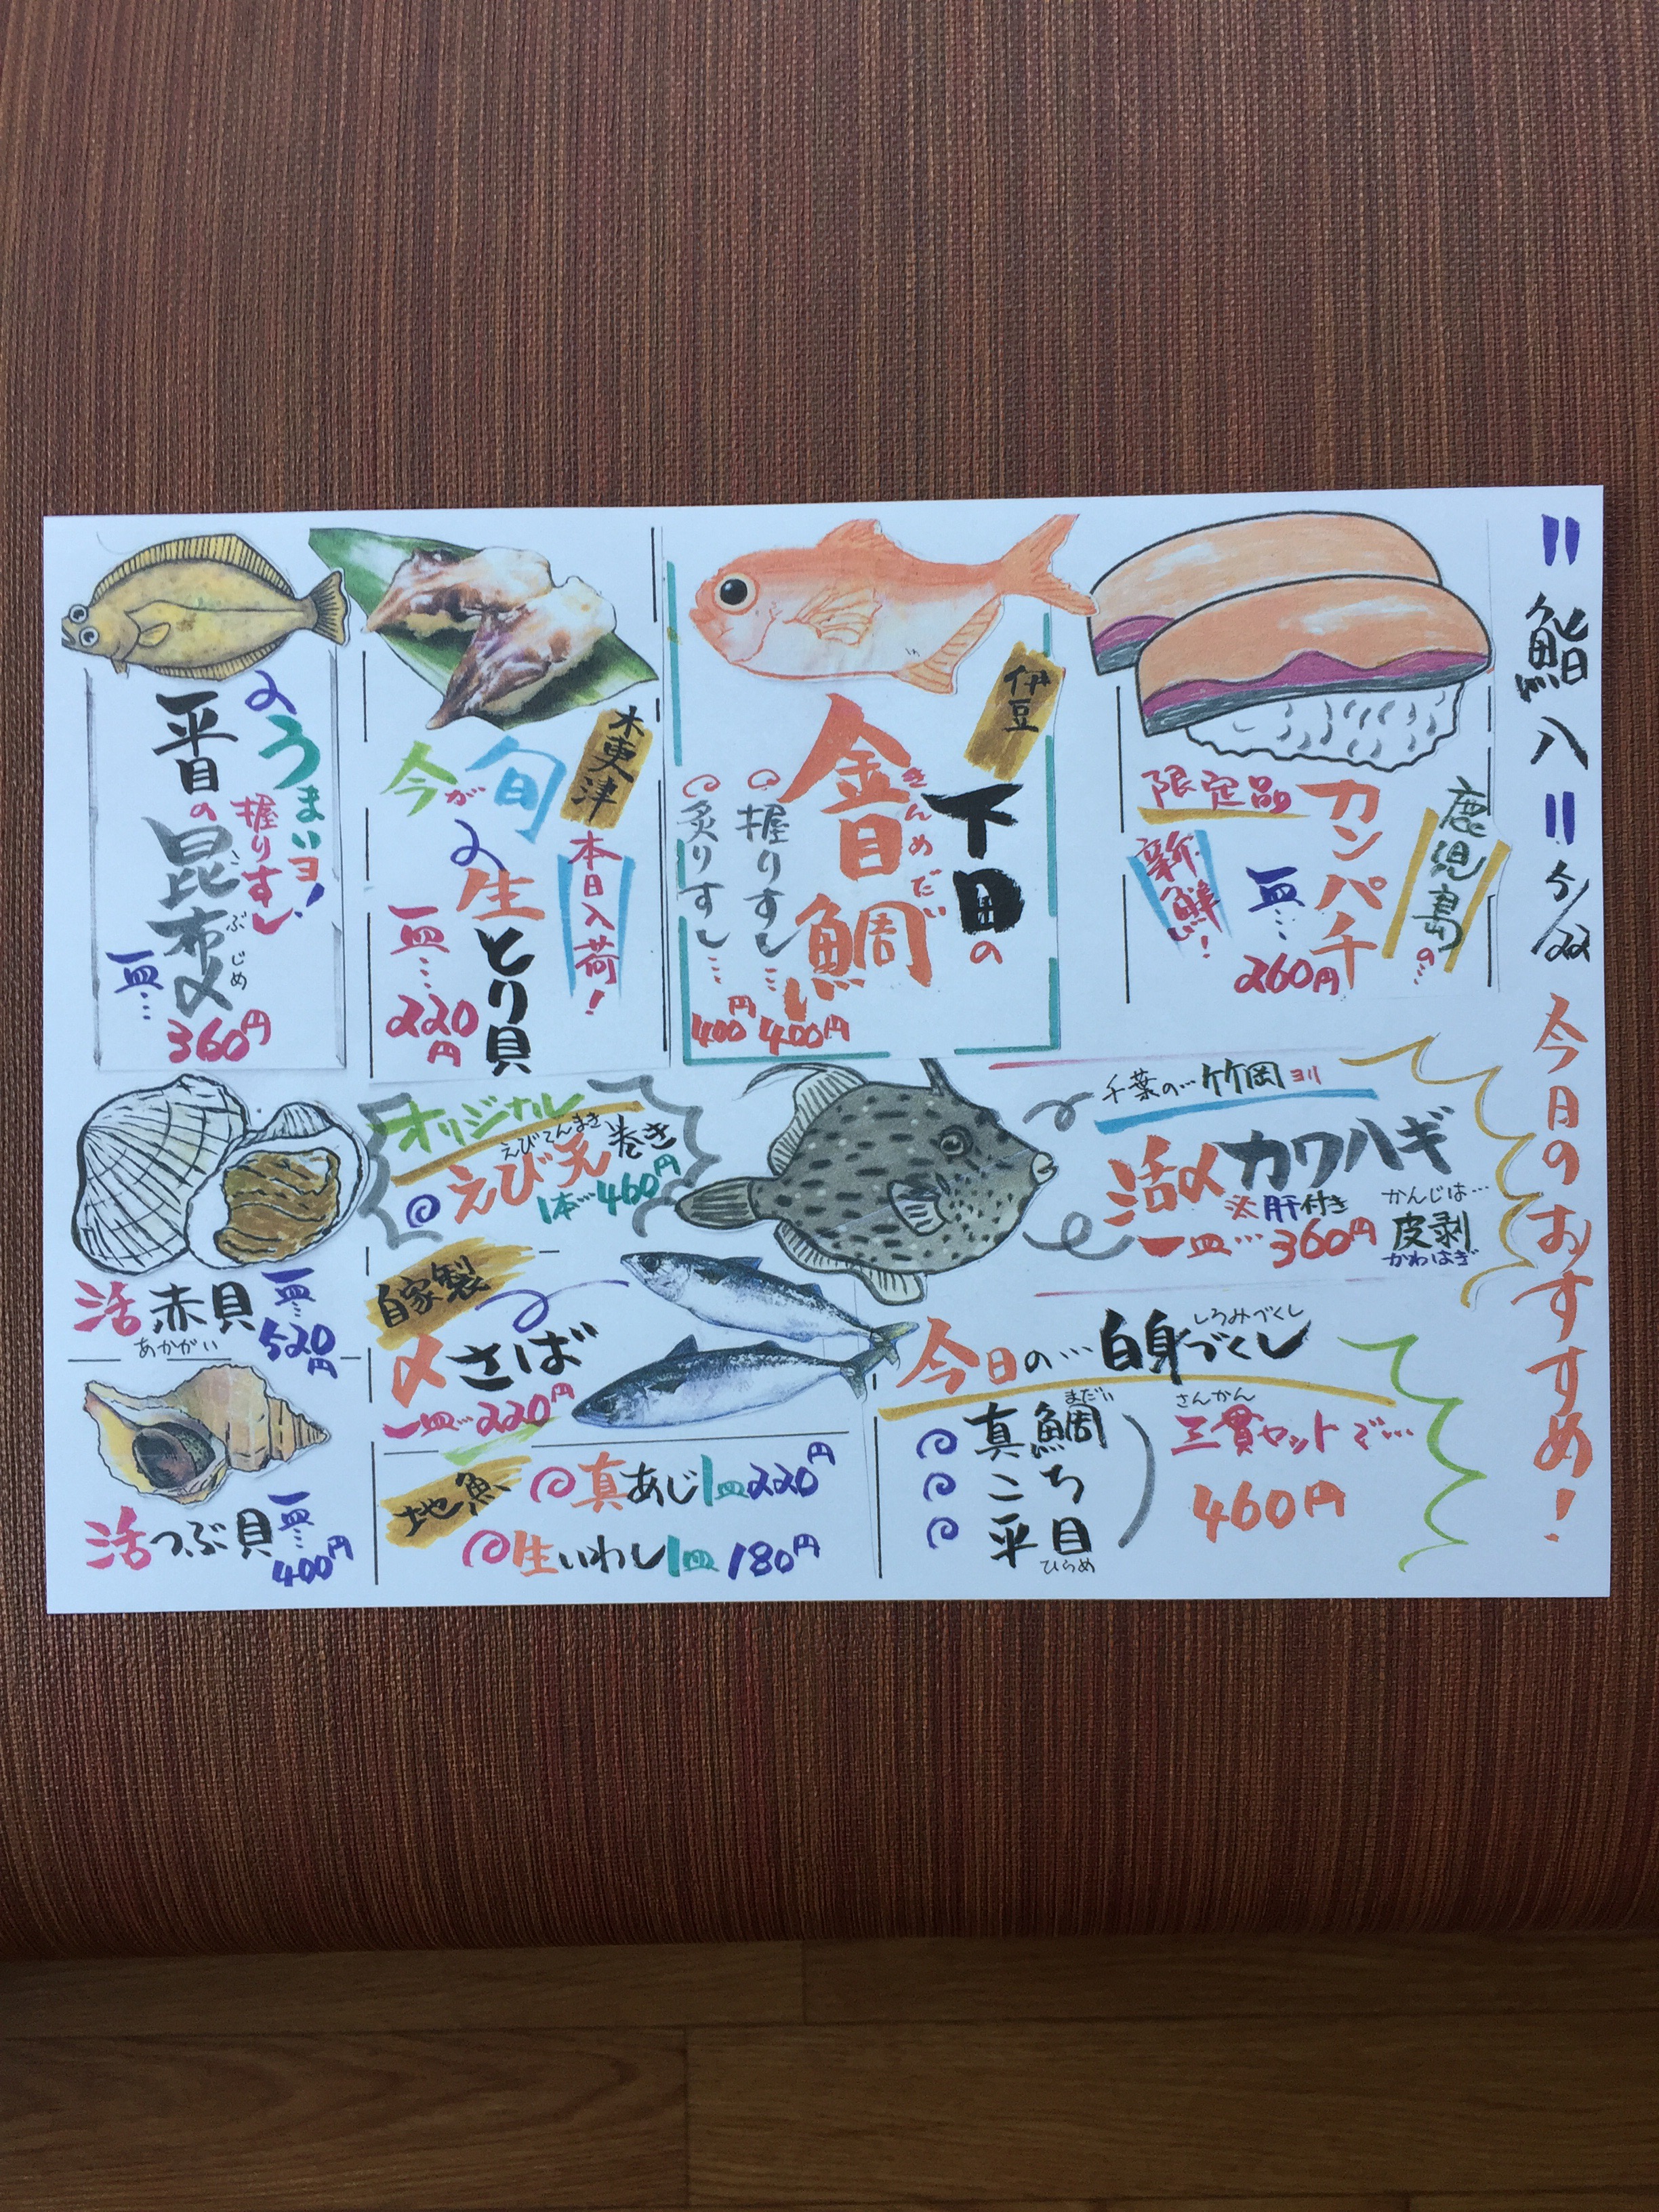 〃鮨八〃 5/22 今日のおすすめ!
鹿児島の…
カンパチ
限定品
新鮮!
一皿…
260円
伊豆
下田の
金目鯛
きんめだい
握りすし…400円
炙りすし…400円
木更津
本日入荷!
今が旬
生とり貝
一皿…
220円
うまいヨ!
握りすし
平目の昆布〆
こぶじめ
一皿…
360円
千葉の…竹岡ヨリ
活〆カワハギ
※肝付き
一皿…360円
かんじは…
皮剥
かわはぎ
オリジナル
えびてんまき
えび天巻き
1本…460円
活赤貝
あかがい
一皿…
520円
自家製
〆さば
一皿…220円
今日の…白身づくし
しろみづくし
まだい
真鯛
こち
平目
ひらめ
さんかん
三貫セットで…
460円
地魚
真あじ1皿220円
生いわし1皿180円
活つぶ貝
一皿…
400円